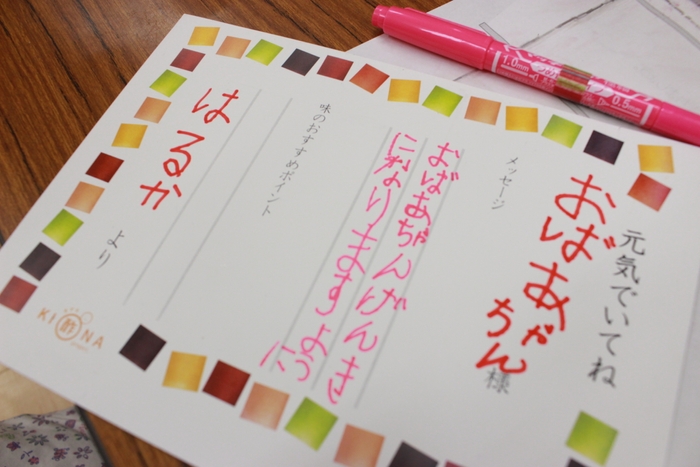 元気でいてね
おばあちゃん様
メッセージ
おばあちゃんげんき
になりますよう
に
味のおすすめポイント
はるか
より
KI酢NA
1.0mm
0.5mm